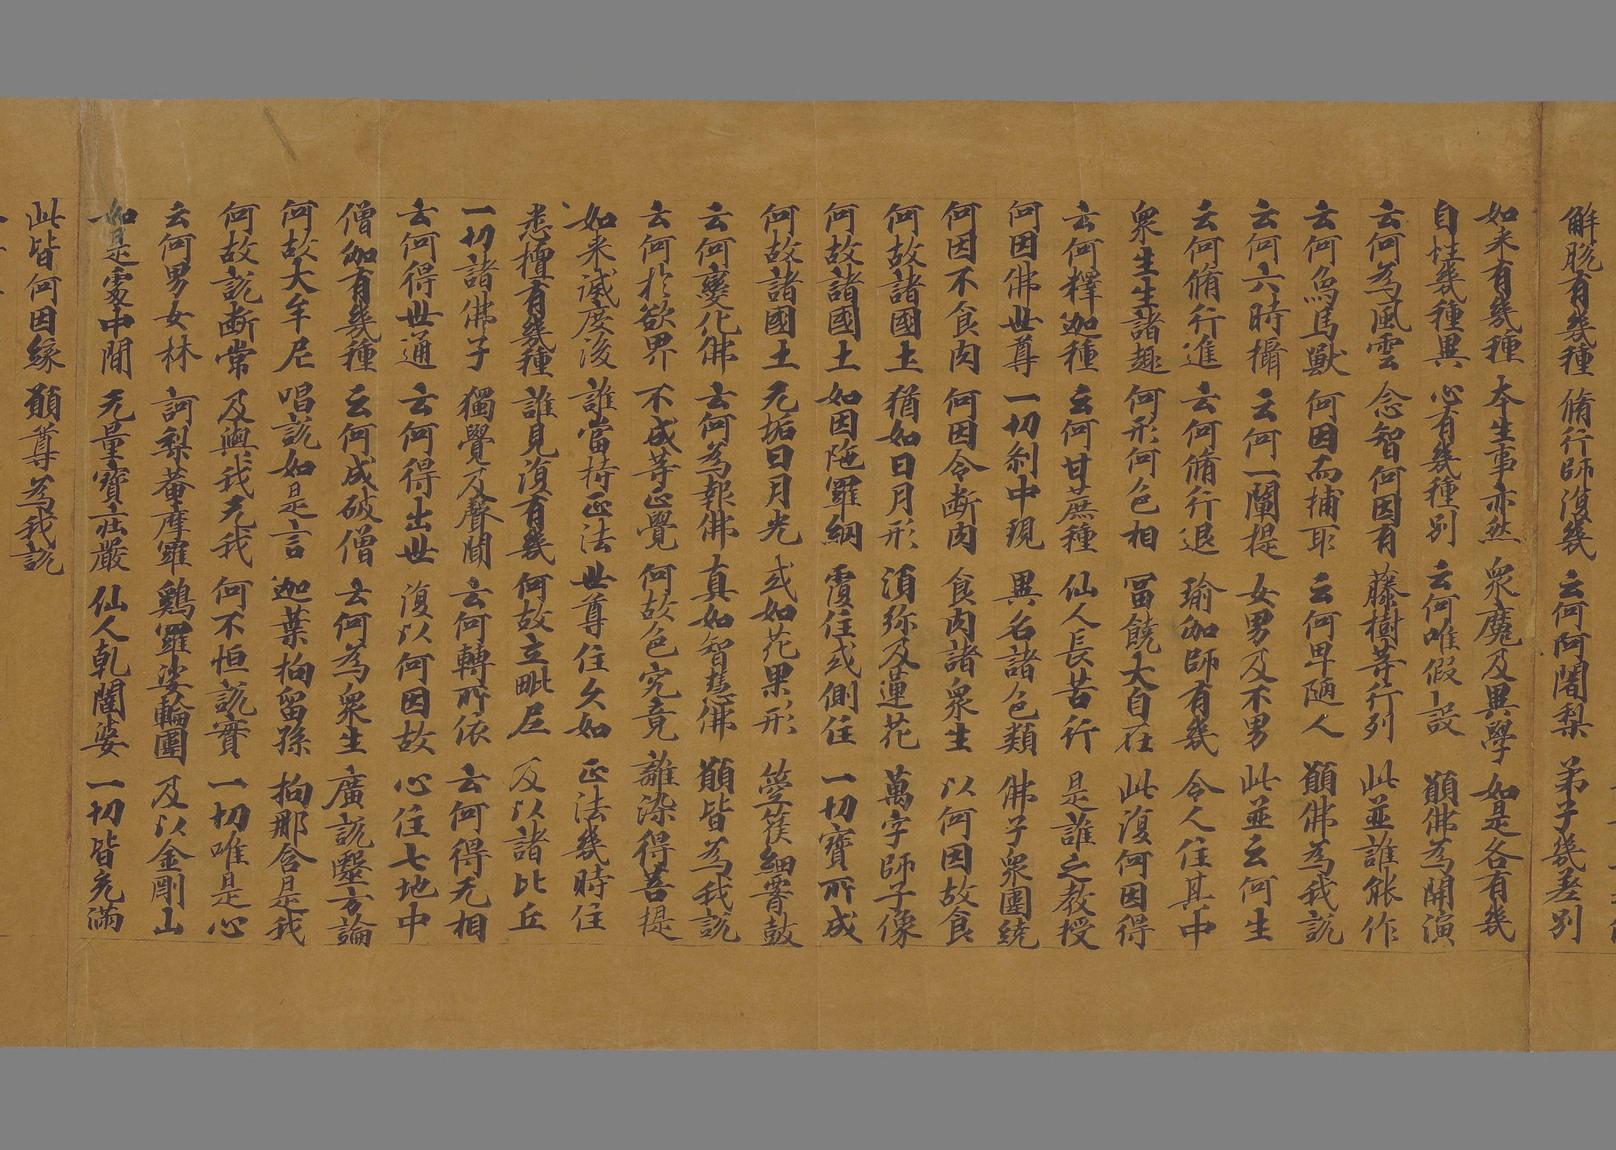 解脫有幾種 脩行師復幾 云何阿闍梨 弟子幾差別
如来有幾種 夲生事亦然 衆魔及異學 如是各有幾
自性幾種異 心有幾種別 云何唯假設 願佛為開演
云何為風雲 念智何因有 藤樹等行列 此並誰能作
云何烏馬獸 何因而捕取 云何卑陋人 願佛為我說
云何六時攝 云何一闡提 女男及不男 此並云何生
云何脩行進 云何脩行退 瑜伽師有幾 令人住其中
衆生生諸趣 何形何色相 冨饒大自在 此復何因得
云何釋迦種 云何甘蔗種 仙人長苦行 是誰之教授
何因佛世尊 一切刹中現 異名諸色類 佛子衆圍繞
何因不食肉 何因令断肉 食肉諸衆生 以何因故食
何故諸國土 猶如日月形 須弥及蓮花 萬字師子像
何故諸國土 如因陁羅網 覆住或側住 一切寶所成
何故諸國土 无垢日月光 或如花果形 箜篌細霄鼓
云何變化佛 云何為報佛 真如智慧佛 願皆為我說
云何扵欲界 不成等正覺 何故色究竟 離染得菩提
如来滅度後 誰當持正法 世尊住久如 正法幾時住
悉檀有幾種 誰見復有幾 何故立毗尼 及以諸比丘
一切諸佛子 獨覺及聲聞 云何轉所依 云何得无相
云何得世通 云何得出世 復以何因故 心住七地中
僧伽有幾種 云何成破僧 云何為衆生 廣說毉方論
何故大牟尼 唱說如是言 迦葉拘留孫 拘那含是我
何故說断常 及與我无我 何不恒說實 一切唯是心
云何男女林 訶梨菴摩羅 鷄羅娑輪圍 及以金剛山
如是處中間 无量寶莊嚴 仙人乾闥婆 一切皆充滿
此皆何因緣 願尊為我說